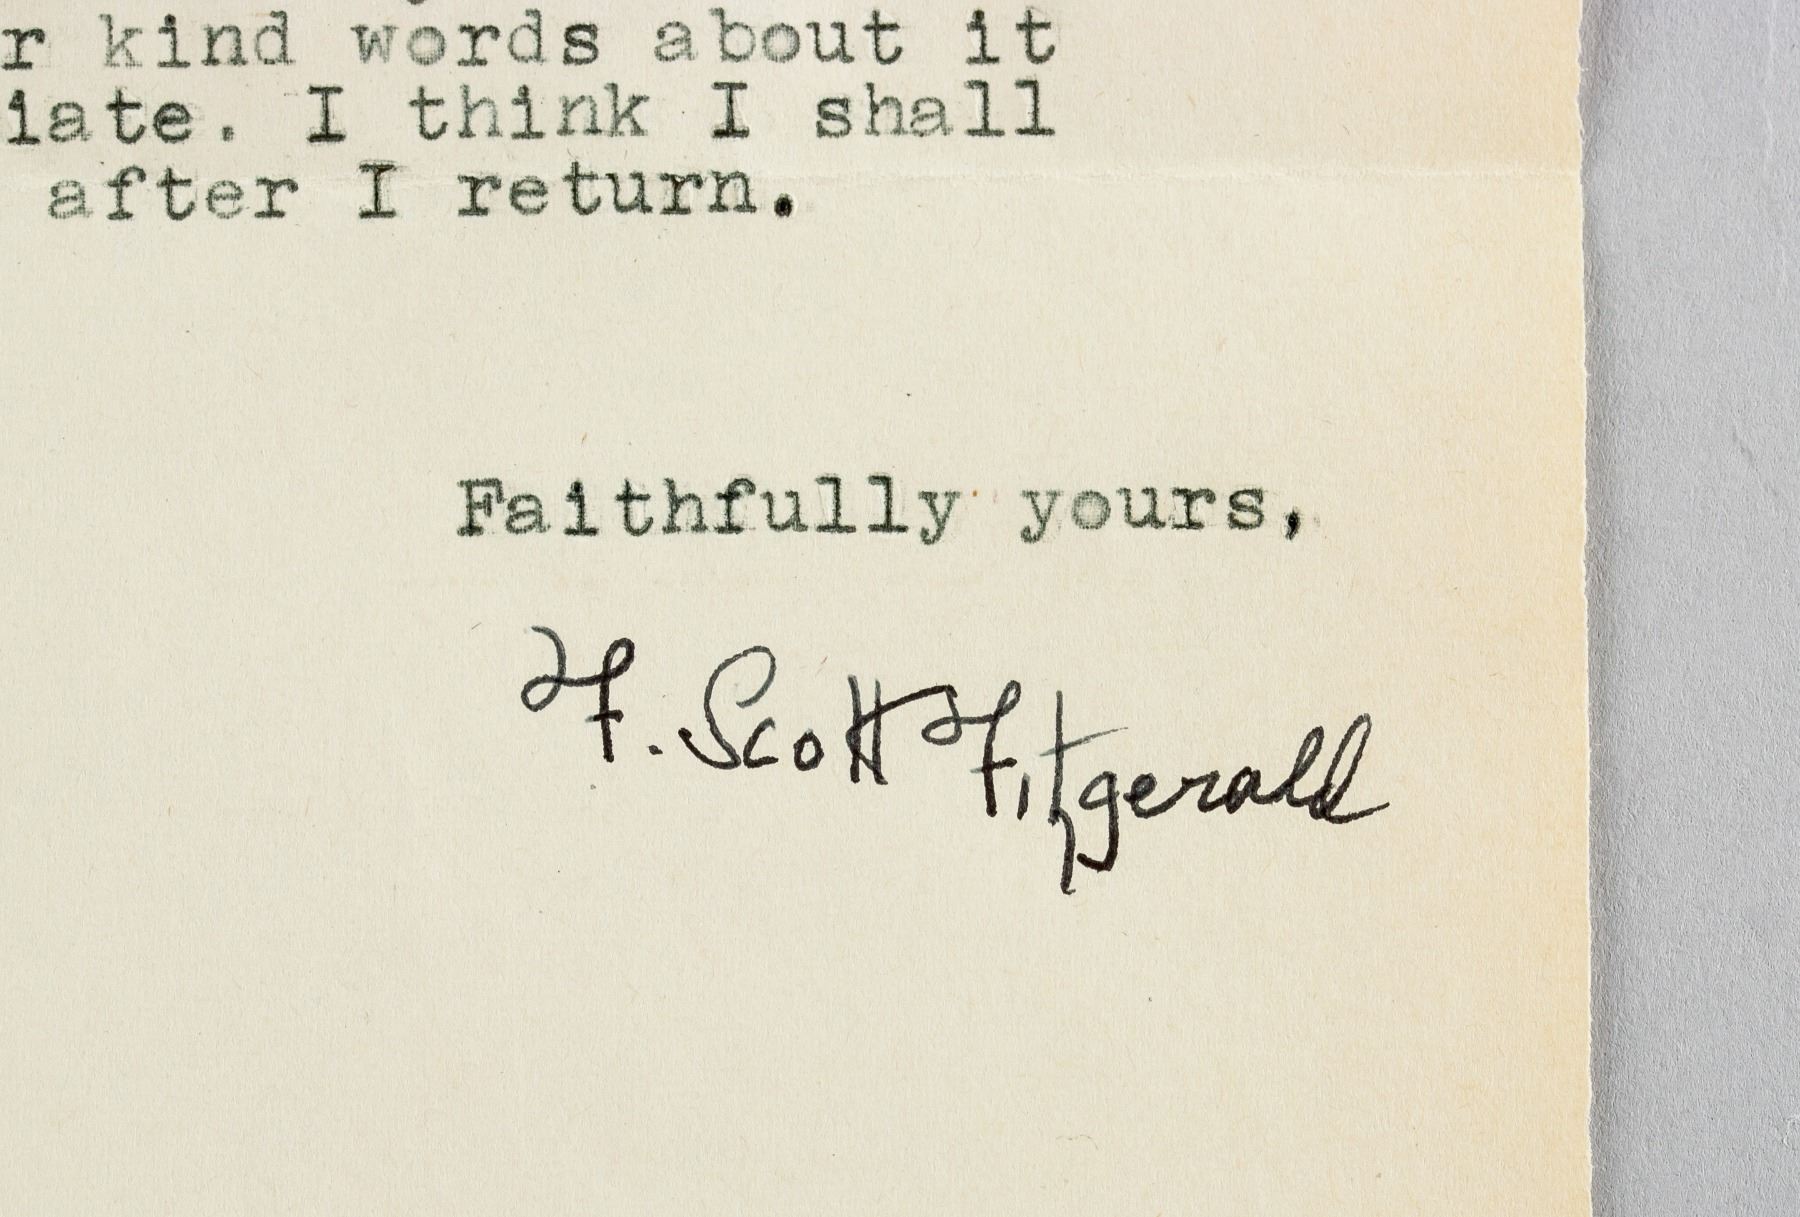 r kind words about it
iate. I think I shall
after I return.
Faithfully yours,
F. Scott Fitzgerald